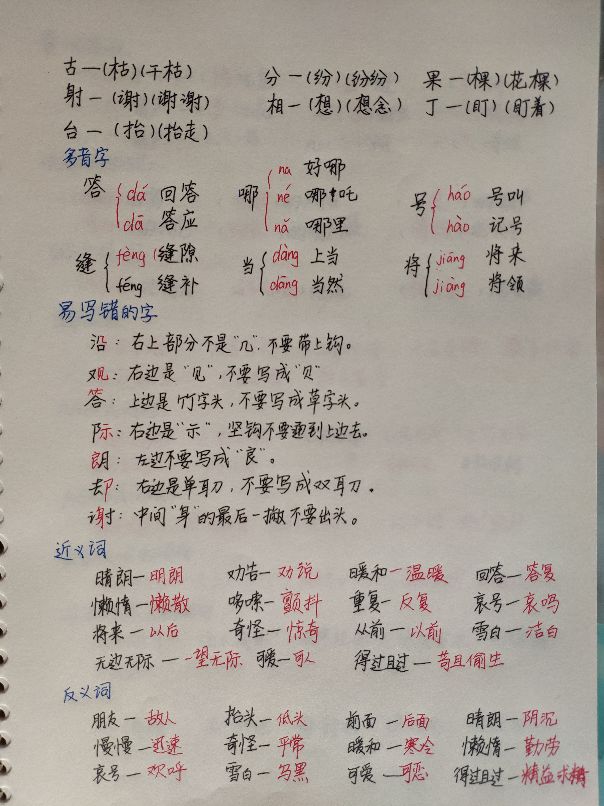 古—(枯)(干枯) 分—(纷)(纷纷) 果—(棵)(花棵)
射—(谢)(谢谢) 相—(想)(想念) 丁—(盯)(盯着)
台—(抬)(抬走)
多音字
答 dá 回答 dā 答应 哪 na 好哪 né 哪吒 nǎ 哪里 号 háo 号叫 hào 记号
缝 fèng 缝隙 féng 缝补 当 dàng 上当 dāng 当然 将 jiāng 将来 jiàng 将领
易写错的字
沿：右上部分不是"几"，不要带上钩。
观：右边是"见"，不要写成"贝"
答：上边是竹字头，不要写成草字头。
际：右边是"示"，竖钩不要通到上边去。
朗：左边不要写成"良"。
却：右边是单耳刀，不要写成双耳刀。
谢：中间"身"的最后一撇不要出头。
近义词
晴朗—明朗 劝告—劝说 暖和—温暖 回答—答复
懒惰—懒散 哆嗦—颤抖 重复—反复 哀号—哀鸣
将来—以后 奇怪—惊奇 从前—以前 雪白—洁白
无边无际—一望无际 可爱—可人 得过且过—苟且偷生
反义词
朋友—敌人 抬头—低头 前面—后面 晴朗—阴沉
慢慢—迅速 奇怪—平常 暖和—寒冷 懒惰—勤劳
哀号—欢呼 雪白—乌黑 可爱—可恶 得过且过—精益求精